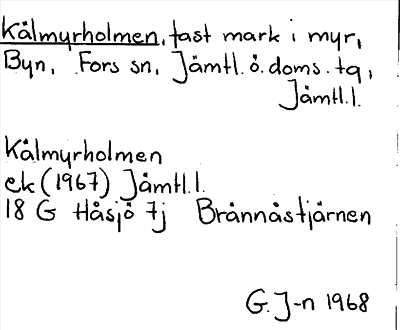 Kålmyrholmen, fast mark i myr,
Byn, Fors sn, Jämtl. ö. doms. tg,
Jämtl.l.
Kålmyrholmen
ek (1967) Jämtl.l.
18 G Håsjö 7j Brännåstjärnen
G. J-n 1968